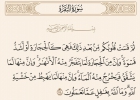 سُورَةُ الْبَقَرَةِ
ثُمَّ قَسَتْ قُلُوبُكُم مِّنْ بَعْدِ ذَٰلِكَ فَهِيَ كَالْحِجَارَةِ أَوْ أَشَدُّ
قَسْوَةً وَإِنَّ مِنَ الْحِجَارَةِ لَمَا يَتَفَجَّرُ مِنْهُ الْأَنْهَارُ وَإِنَّ مِنْهَا لَمَا
يَشَّقَّقُ فَيَخْرُجُ مِنْهُ الْمَاءُ وَإِنَّ مِنْهَا لَمَا يَهْبِطُ مِنْ خَشْيَةِ
اللَّهِ وَمَا اللَّهُ بِغَافِلٍ عَمَّا تَعْمَلُونَ